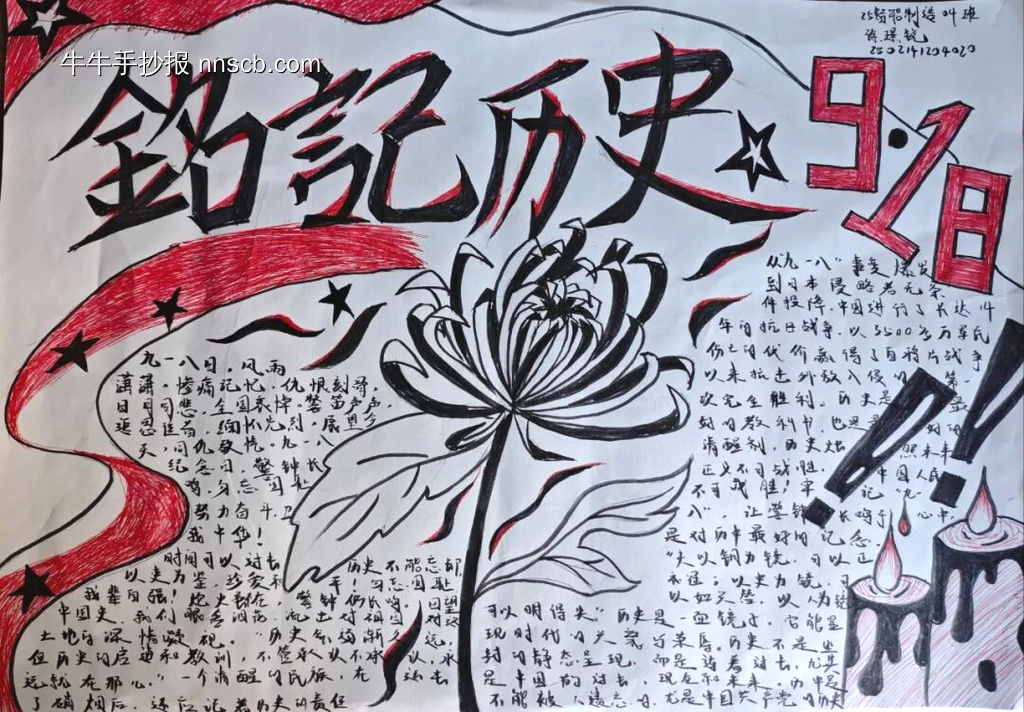 牛牛手抄报 nnscb.com
制造04班
2502141204020
銘記历史
9·18
九一八日，风雨
潇潇，惨痛记忆，仇恨刻骨，
日月同悲，全国哀悼，警笛声声，
缅怀先烈，
同仇敌忾，九一八
纪念日，警钟长
鸣，勿忘国耻
努力奋斗，
我中华！
时间可以过去
历史不能忘却
以史为鉴，珍爱和
平！勿忘国耻
我辈自强！炮火
警钟仍长鸣，回望
中国史，我们眼含泪花，流出对祖国对这
土地的深情凝视。“历史会
但历史的启迪和教训，不管承认不承认，永
远就在那儿。”一个清醒的民族，在
过去
了硝烟后，还应记着历史的责任
从“九一八”事变爆发
到日本侵略者无条
件投降，中国进行了长达14
年的抗日战争，以3500多万军民
伤亡的代价赢得了自鸦片战争
以来抗击外敌入侵的
第一
次完全胜利。历史是
最
好的教科书，也是
好的
清醒剂，历史
照未来
正义不可战胜，
中国人民
不可战胜！牢
记“九一
八”，让警钟长鸣于心中，
是对历史最好的记念。
“夫以铜为镜，可以正
衣冠；以史为镜，可
以知兴替，以人为镜
可以明得失”历史是一面镜子，它能显
现时代的兴衰与荣辱。历史不是
封的静态呈现，而是
着过去，尤其
是中国的过去、现在和未来，历史是
不能被人遗忘的，尤是中国共产党的历史